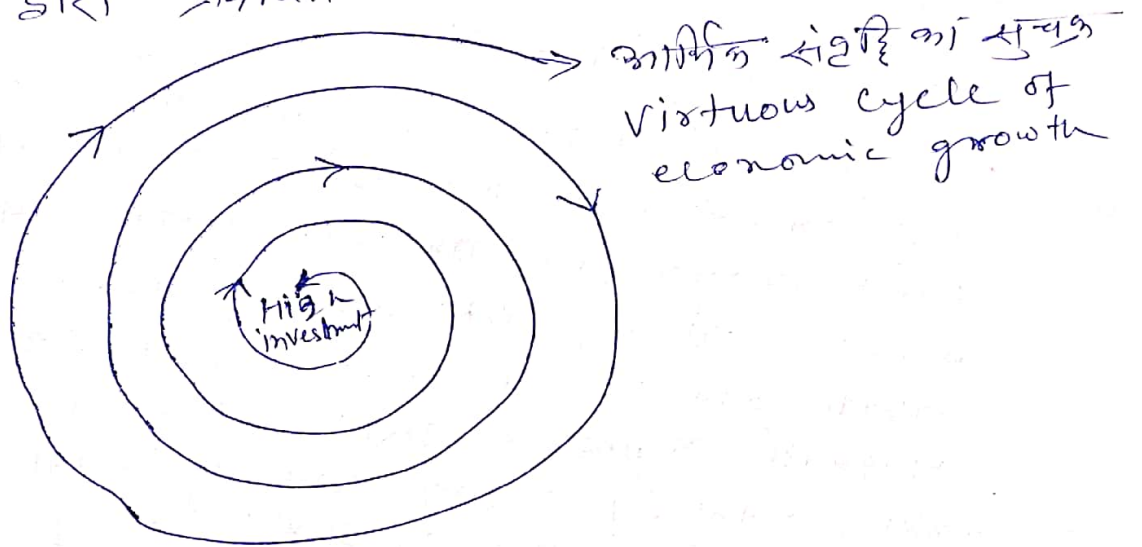 द्वारा
आर्थिक संवृद्धि का सुचक्र
virtuous cycle of
economic growth
High
investment